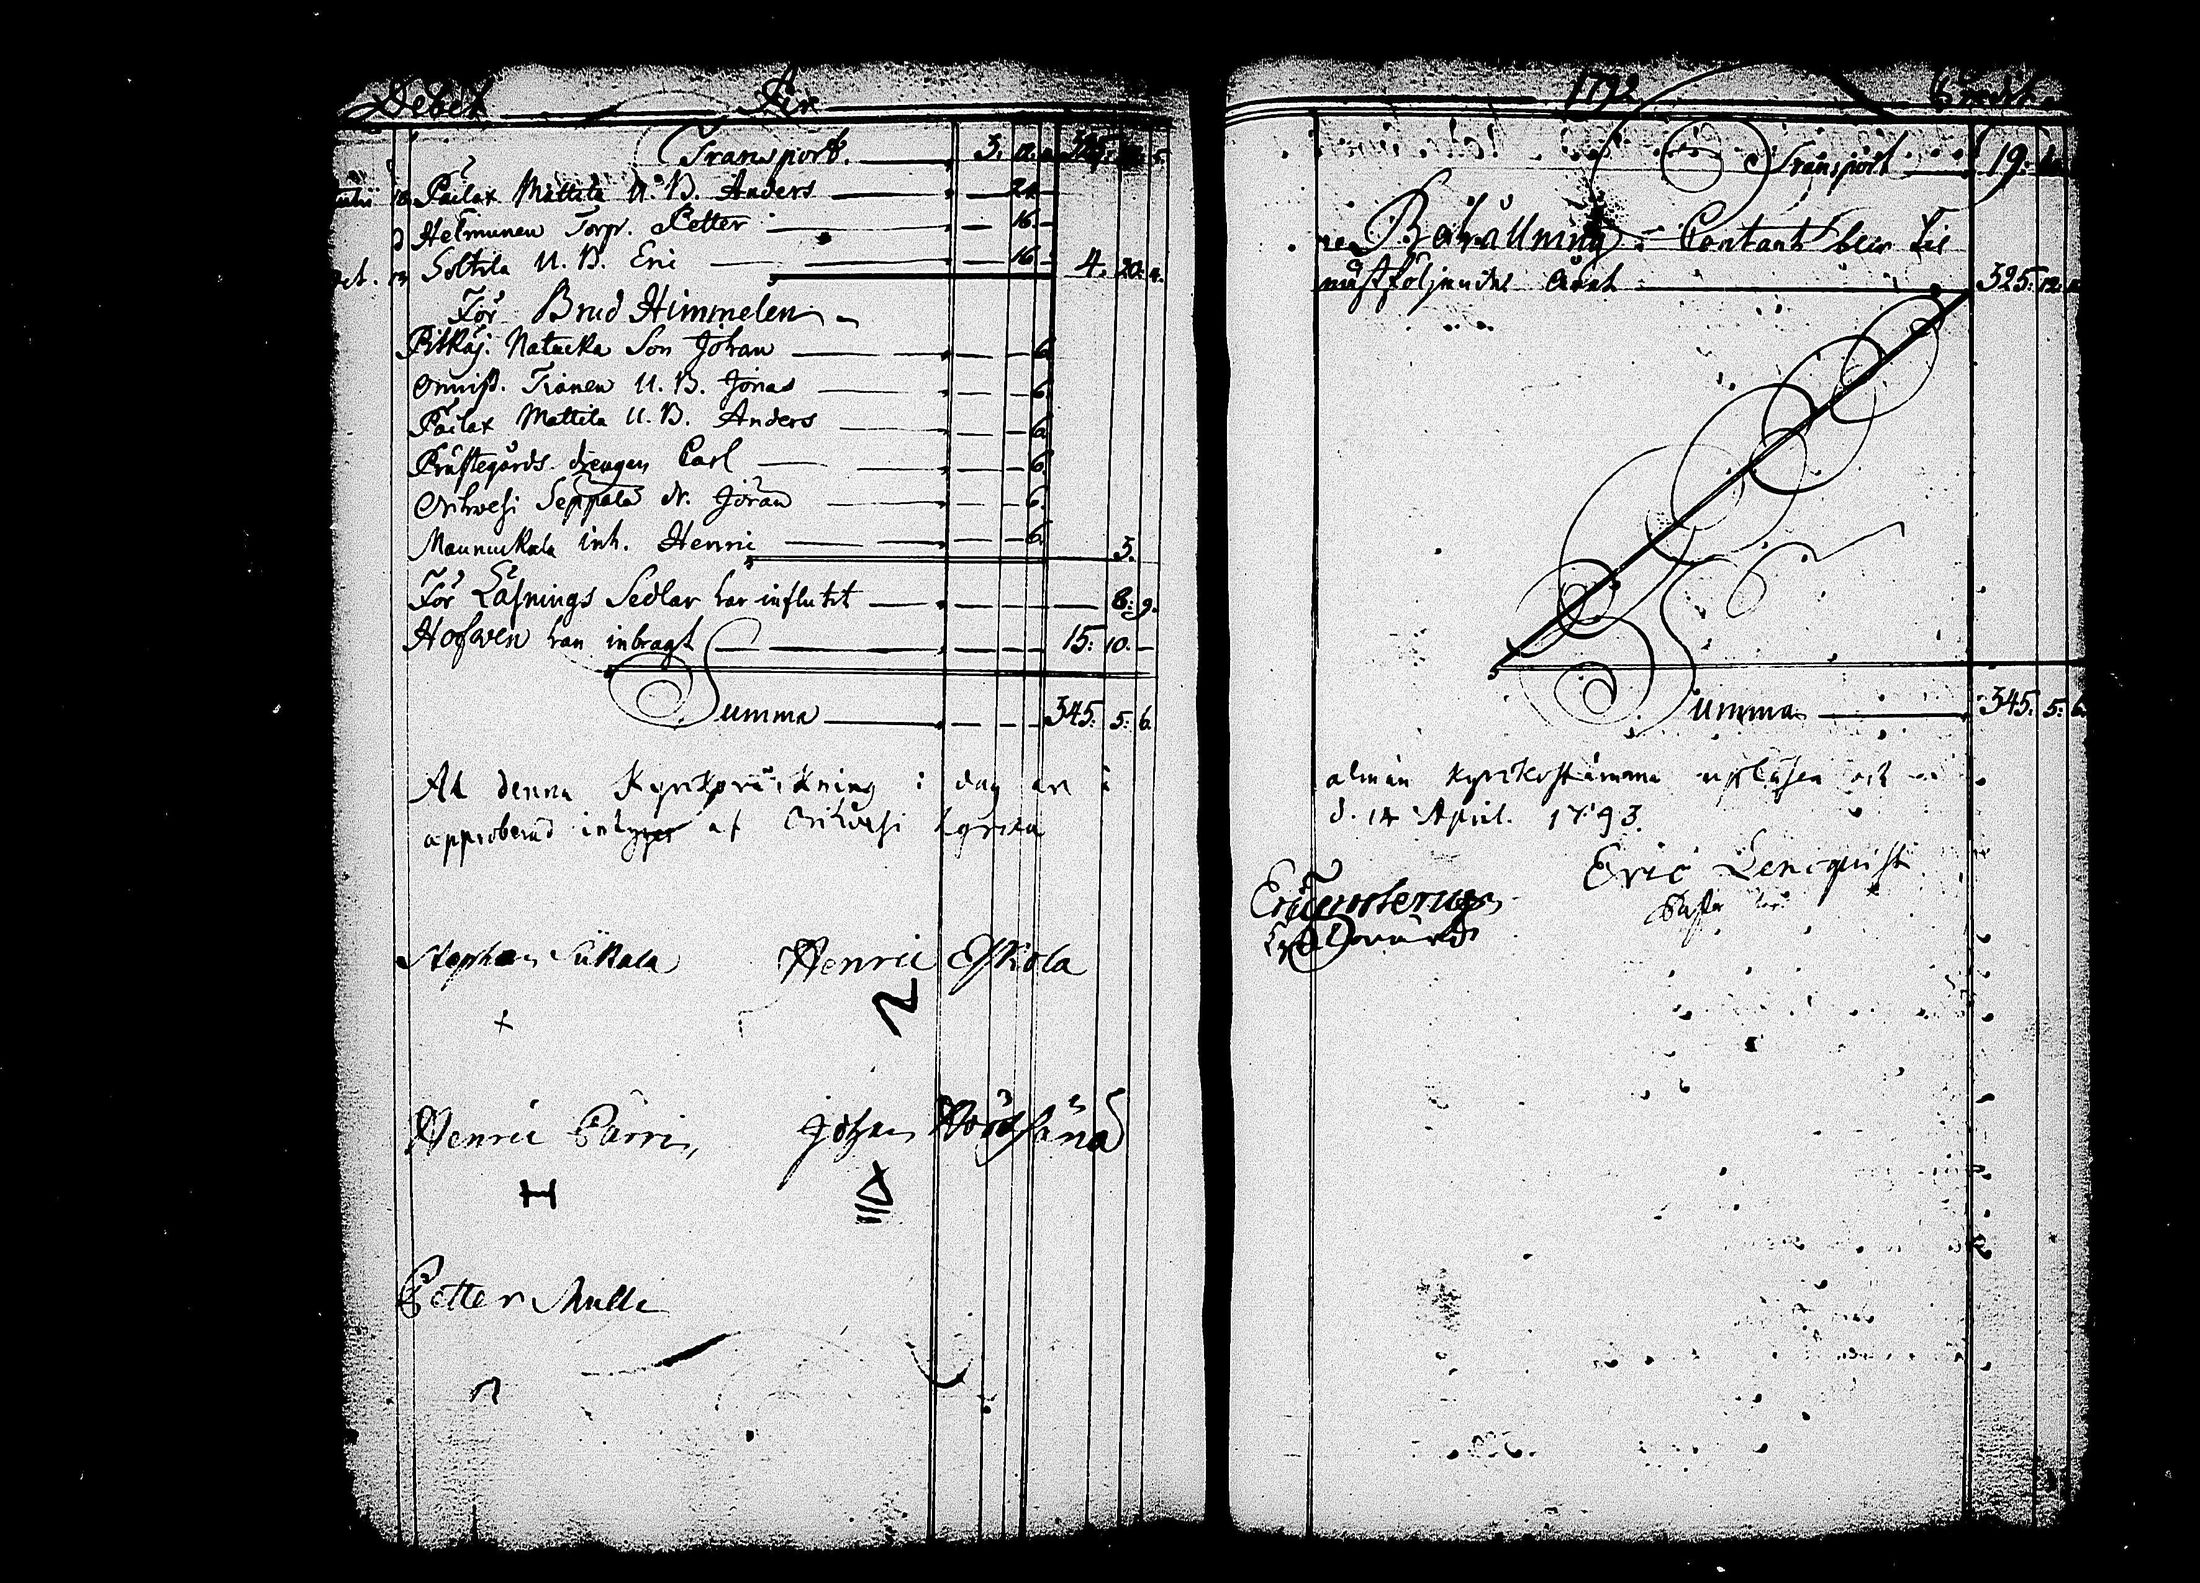 Debet År
Transport. 3. 12. 325.
Pailax Mattila U. B. Anders 24
Helmunen Torpr. Petter 16. –
Soltila U. B. Eric 16 4. 20. 4.
För Brud Himmelen
Pitkäj. Natucka Son Johan 6
Onniß. Tianen U. B. Jonas 6
Pailax Mattila U. B. Anders 6
Prästegårds drengen Carl 6
Orihvesi Seppälä dr. Jöran 6
Maunukala inh. Henric 6. 3.
För Läsnings Sedlar har influtit 8. 9.
Hofwen han inbragt 15. 10. –
Summa 345. 5. 6.
At denna Kyrkoräkning i dag är i
approberad af Orihvesi Kyrka
Stephan Siikala Henric Eskola
+
Henric Pärri Johan
Petter Mulli
1792 Credit
Transport 19.
Behållning Contant blir til
nästföljande året 325. 12.
Summa 345. 5. 6.
almän Kyrkostämma upläsen och
d. 14 April. 1793.
Eric Lencqvist